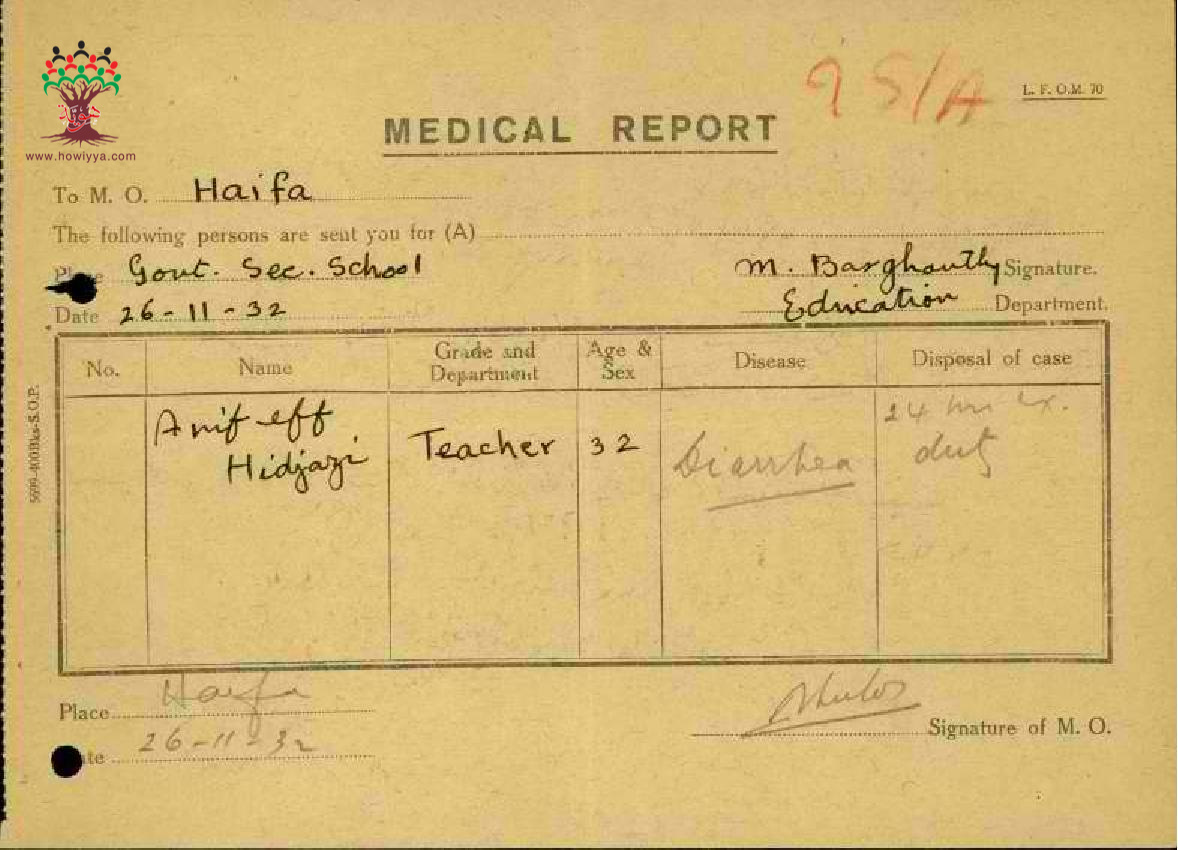 95/A
L. F. O.M. 70
MEDICAL REPORT
www.howiyya.com
To M. O. Haifa
The following persons are sent you for (A)
Place Govt. Sec. School
M. Barghouthy Signature.
Date 26-11-32
Education Department.
No. Name Grade and Department Age & Sex Disease Disposal of case
Arif eff Hidjazi Teacher 32 Diarrhea 24 hrs ex. duty
Place Haifa
Signature of M. O.
ate 26-11-32